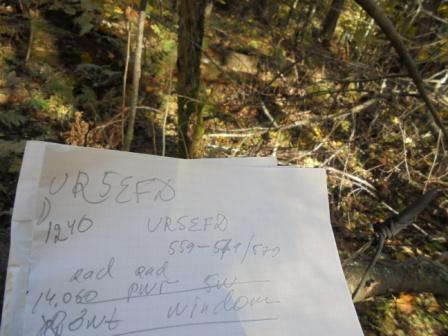 UR5EFD
1240 UR5EFD
559-579
rad rad
14.060 pwr 5w
window